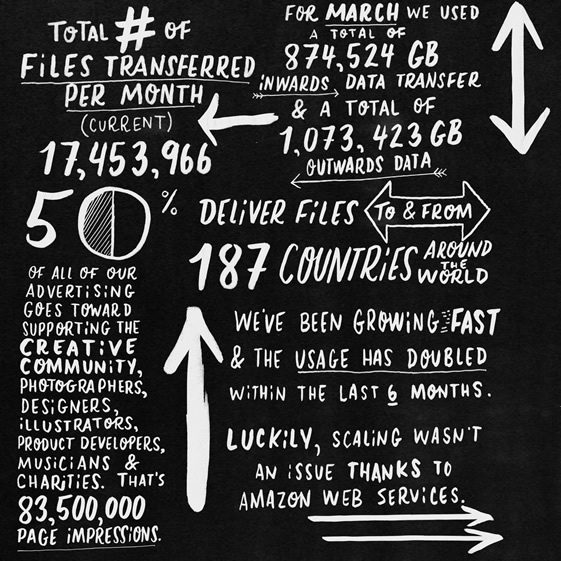 TOTAL # OF
FILES TRANSFERRED
PER MONTH
(CURRENT)
17,453,966
FOR MARCH WE USED
A TOTAL OF
874,524 GB
INWARDS DATA TRANSFER
& A TOTAL OF
1,073,423 GB
OUTWARDS DATA
50 %
OF ALL OF OUR
ADVERTISING
GOES TOWARD
SUPPORTING THE
CREATIVE
COMMUNITY,
PHOTOGRAPHERS,
DESIGNERS,
ILLUSTRATORS,
PRODUCT DEVELOPERS,
MUSICIANS &
CHARITIES. THAT'S
83,500,000
PAGE IMPRESSIONS.
DELIVER FILES TO & FROM
187 COUNTRIES AROUND
THE
WORLD
WE'VE BEEN GROWING FAST
& THE USAGE HAS DOUBLED
WITHIN THE LAST 6 MONTHS.
LUCKILY, SCALING WASN'T
AN ISSUE THANKS TO
AMAZON WEB SERVICES.